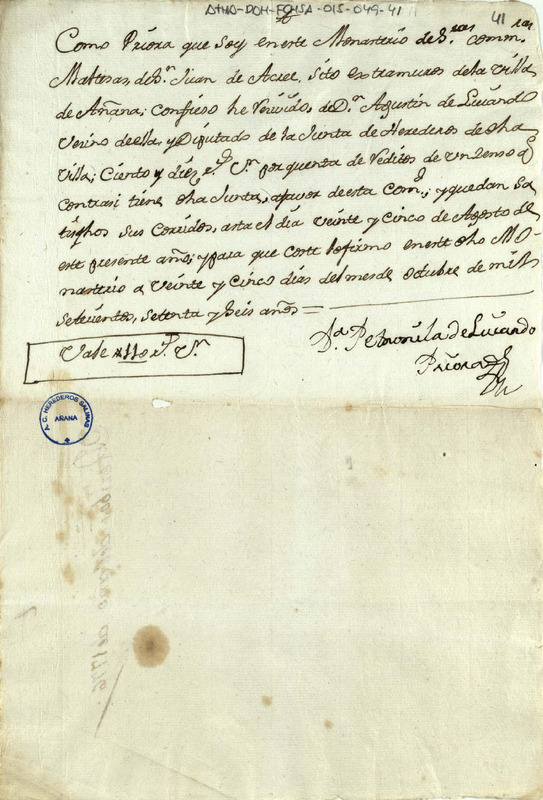 ATHA-DOH-FCHSA-015-049-41
41
Como Priora que soy en este Monasterio de S.ras comm.ras
Maltesas, de S.n Juan de Acree, sito extramuros de la Villa
de Añana; Confieso he Revivido, de D.n Agustin de Luiando
Vezino de ella, y Diputado de la Junta de Herederos de dha
Villa; Ciento y diez r.s V.n por quenta de Reditos de un Zenso q.e
contra si tiene dha Junta, a favor de esta Com.d; y quedan Sa
tisfhos sus Corridos, asta el dia veinte y cinco de Agosto de
este presente año; y para que coste lo firmo en este dho Mo-
nasterio a Veinte y cinco dias del mes de octubre de mill
setezientos, setenta y seis años =
D.a Petronila de Luiando
Priora
Vale 110 r.s V.n
A. C. HEREDEROS SALINAS
AÑANA